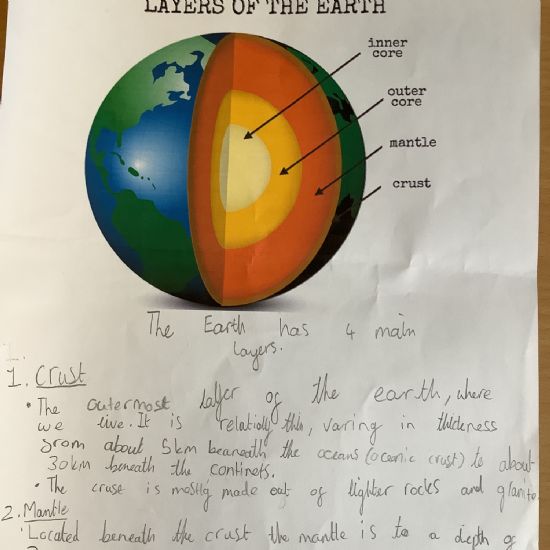 LAYERS OF THE EARTH
inner
core
outer
core
mantle
crust
The Earth has 4 main
layers.
1. Crust
• The outermost layer of the earth, where
we live. It is relatiolly thin, varing in thickness
from about 5km beaneath the oceans (oceanic crust) to about
30km beneath the continets.
• The crust is mostly made out of lighter rocks and glanite.
2. Mantle
• Located beneath the crust the mantle is to a depth of